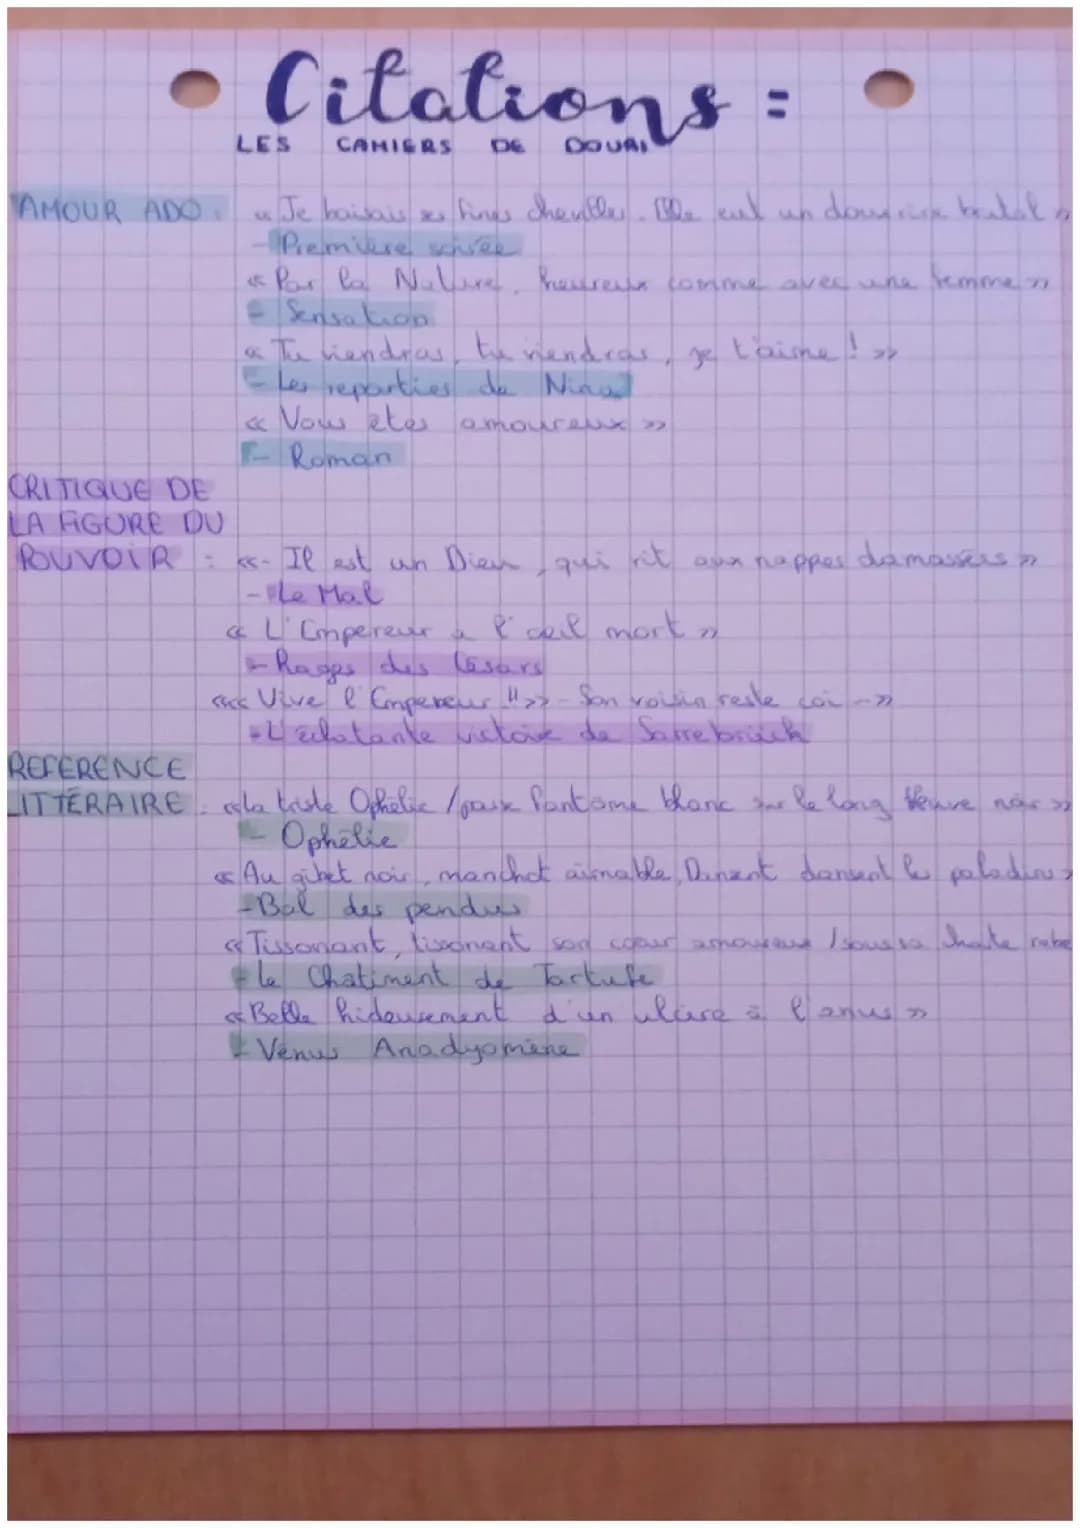 Citations =
LES CAHIERS DE DOUAI
AMOUR ADO : « Je baisais ses fines chevilles. Elle eut un doux rire brutal »
- Première soirée
« Par la Nature, heureux comme avec une femme »
- Sensation
« Tu viendras, tu viendras, je t'aime ! »
- Les reparties de Nina
« Vous êtes amoureux »
- Roman
CRITIQUE DE
LA FIGURE DU
POUVOIR : «- Il est un Dieu, qui rit aux nappes damassées »
- Le Mal
« L'Empereur a l'œil mort »
- Rages des Césars
«« Vive l'Empereur !! »» - Son voisin reste coi - »
- L'éclatante victoire de Sarrebrück
REFERENCE
LITTÉRAIRE : « la triste Ophélie / passe fantôme blanc sur le long fleuve noir »
- Ophélie
« Au gibet noir, manchot aimable, Dansent dansent les paladins »
- Bal des pendus
« Tissonant, tissonant son cœur amoureux / sous sa chaste robe
- Le Chatiment de Tartufe
« Belle hideusement d'un ulcère à l'anus »
- Vénus Anadyomène